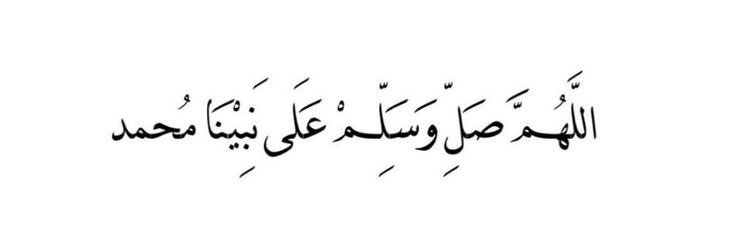 اللَّهُمَّ صَلِّ وَسَلِّمْ عَلَى نَبِيْنَا مُحمد